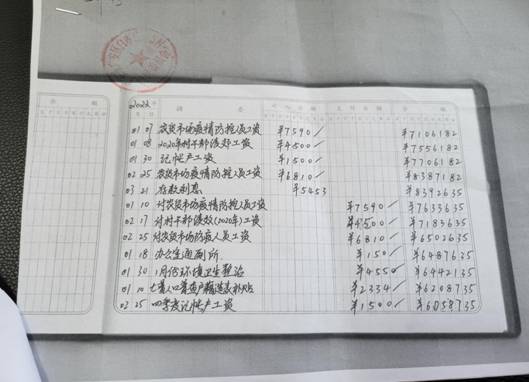 2022年 摘 要
01 07 农贸市场疫情防控人员工资 ¥7590 ¥7106182
01 08 2020年村干部绩效工资 ¥4500 ¥7556182
01 30 记帐户工资 ¥1500 ¥7706182
02 25 农贸市场疫情防控人员工资 ¥6810 ¥8387182
03 21 存款利息 ¥5453 ¥8392635
01 10 付农贸市场疫情防控人员工资 ¥7590 ¥7633635
02 17 付村干部绩效(2020年)工资 ¥4500 ¥7183635
02 25 付农贸市场防疫人员工资 ¥6810 ¥6502635
01 18 办公室通厕所 ¥150 ¥6487635
01 30 1月份环境卫生整治 ¥4550 ¥6442135
01 10 七普人口普查户籍 补贴 ¥2334 ¥6208735
02 25 四季度记帐户工资 ¥1500 ¥6058735